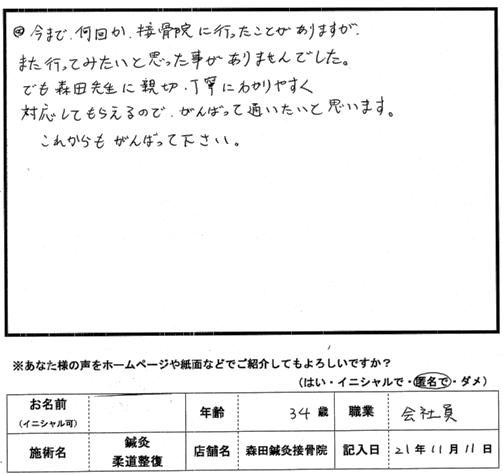 ④今まで、何回か、接骨院に行ったことがありますが、
また行ってみたいと思った事がありませんでした。
でも森田先生に親切、丁寧にわかりやすく
対応してもらえるので、がんばって通いたいと思います。
これからもがんばって下さい。
※あなた様の声をホームページや紙面などでご紹介してもよろしいですか？
（はい・イニシャルで・匿名で・ダメ）
お名前 年齢 34歳 職業 会社員
（イニシャル可）
施術名 鍼灸 柔道整復 店舗名 森田鍼灸接骨院 記入日 21年11月11日